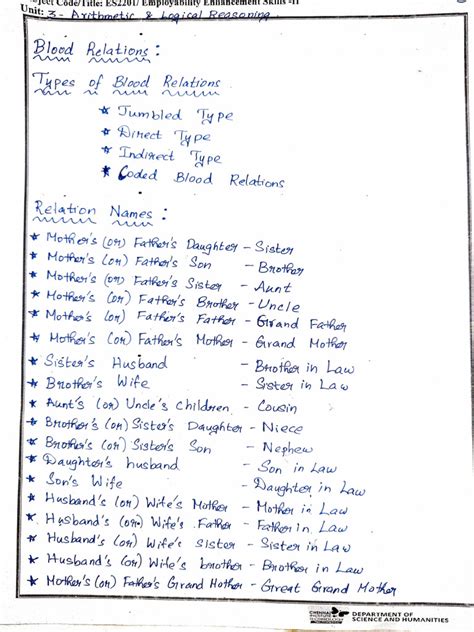 Subject Code/Title: ES2201/ Employability Enhancement Skills -II
Unit: 3 - Arithmetic & Logical Reasoning
Blood Relations :
Types of Blood Relations
* Jumbled Type
* Direct Type
* Indirect Type
* Coded Blood Relations
Relation Names :
* Mother's (or) Father's Daughter - Sister
* Mother's (or) Father's Son - Brother
* Mother's (or) Father's Sister - Aunt
* Mother's (or) Father's Brother - Uncle
* Mother's (or) Father's Father - Grand Father
* Mother's (or) Father's Mother - Grand Mother
* Sister's Husband - Brother in Law
* Brother's Wife - Sister in Law
* Aunt's (or) Uncle's Children - Cousin
* Brother's (or) Sister's Daughter - Niece
* Brother's (or) Sister's Son - Nephew
* Daughter's husband - Son in Law
* Son's Wife - Daughter in Law
* Husband's (or) Wife's Mother - Mother in Law
* Husband's (or) Wife's Father - Father in Law
* Husband's (or) Wife's Sister - Sister in Law
* Husband's (or) Wife's brother - Brother in Law
* Mother's (or) Father's Grand Mother - Great Grand Mother
DEPARTMENT OF
SCIENCE AND HUMANITIES